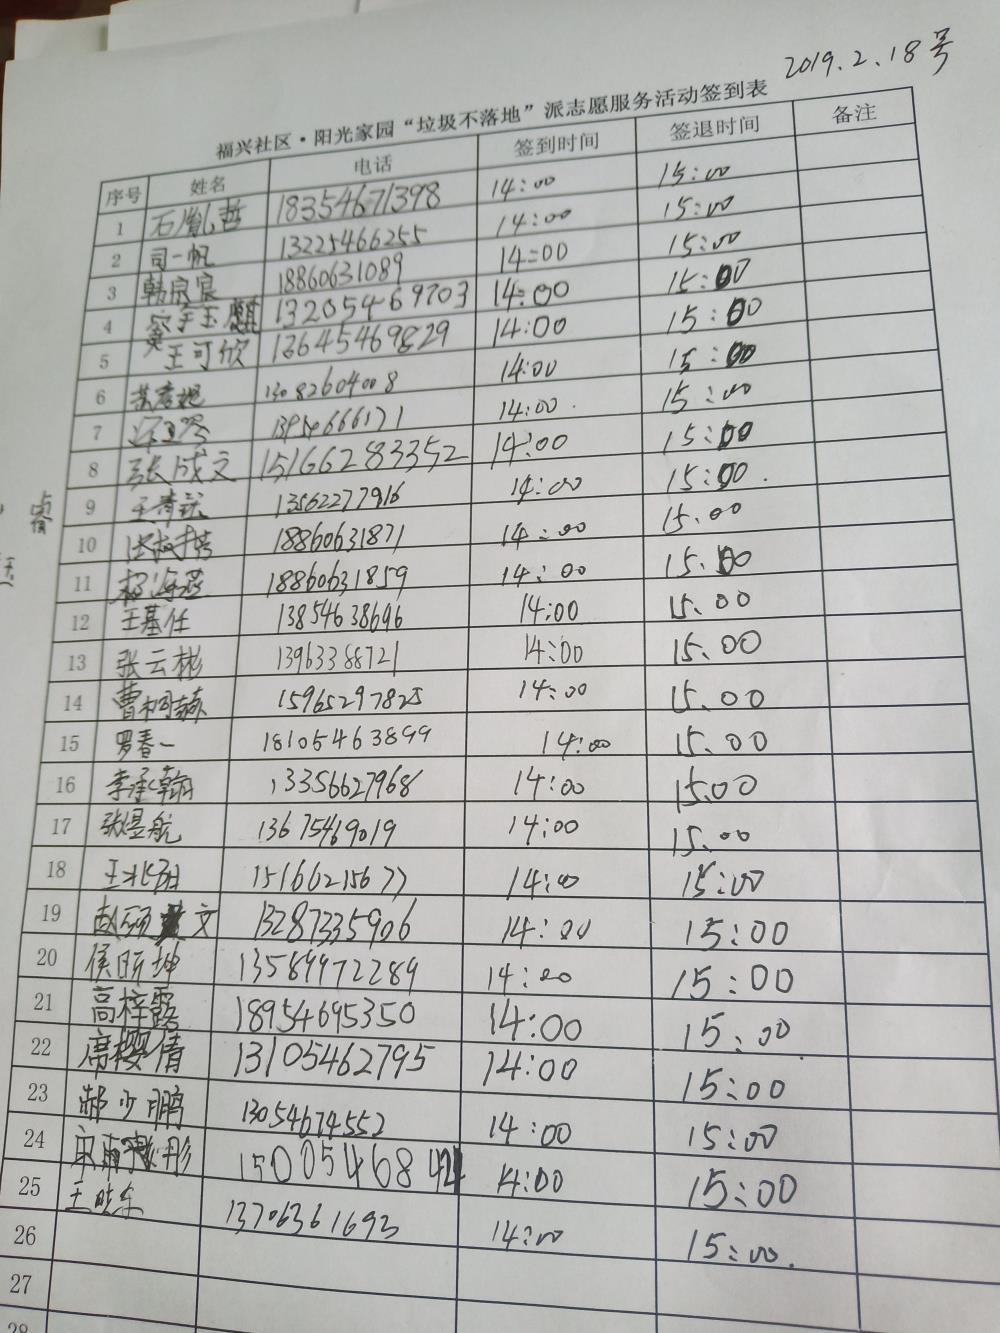 2019.2.18号
福兴社区·阳光家园“垃圾不落地”派志愿服务活动签到表
序号 姓名 电话 签到时间 签退时间 备注
1 18354671398 14:00 15:00
2 司一帆 13225466255 14:00 15:00
3 18860631089 14:00 15:00
4 13205469703 14:00 15:00
5 王可欣 13645469829 14:00 15:00
6 13082604008 14:00 15:00
7 14:00 15:00
8 张成文 15166283352 14:00 15:00
9 13562277916 14:00 15:00
10 18860631871 14:00 15.00
11 18860631859 14:00 15.00
12 王基任 13854638696 14:00 15.00
13 张云彬 13963388721 14:00 15.00
14 15965297825 14:00 15.00
15 罗春一 18105463899 14:00 15.00
16 李承翰 13356627968 14:00 15.00
17 张煜航 13675469019 14:00 15.00
18 15166215677 14:00 15:00
19 13287335906 14:00 15:00
20 侯昕坤 13589972289 14:00 15:00
21 高梓露 18954695350 14:00 15:00
22 席樱倩 13105462795 14:00 15:00
23 郝少鹏 13054674552 14:00 15:00
24 14:00 15:00
25 王晓东 13706361693 14:00 15:00
26
27
28